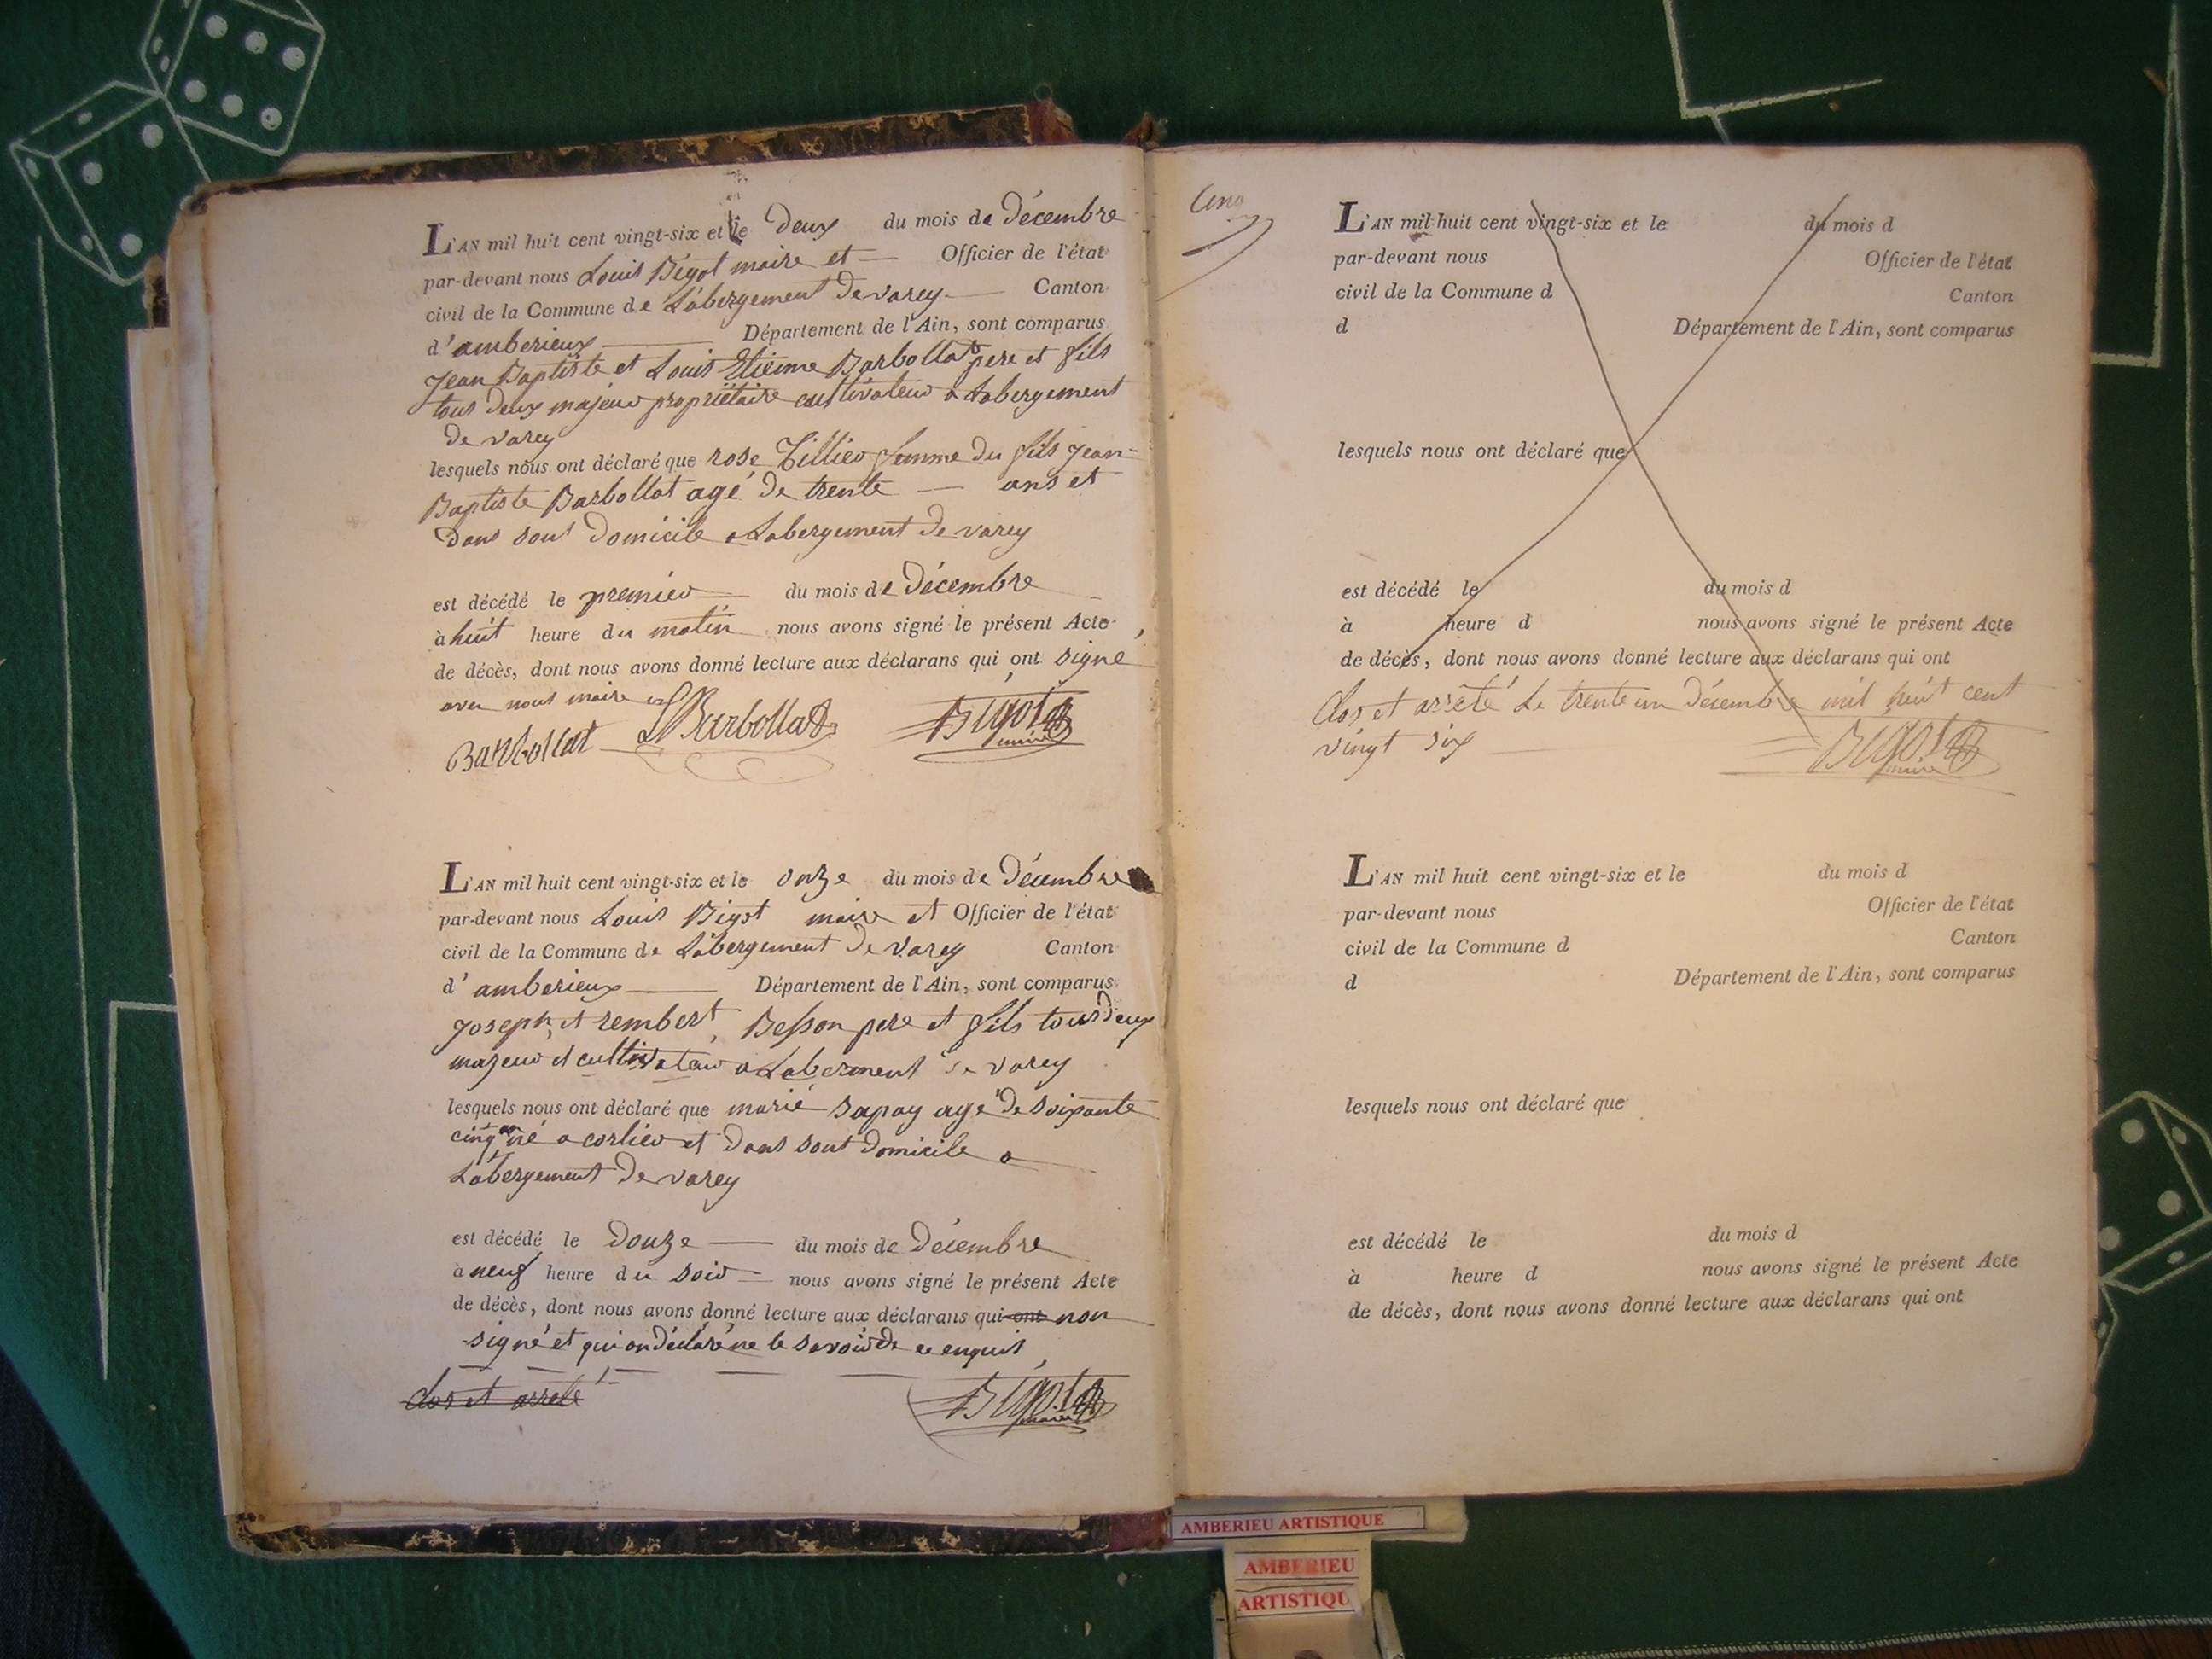 L'AN mil huit cent vingt-six et le Deux du mois de Décembre
par-devant nous Louis Bigot maire et Officier de l'état
civil de la Commune de Labergement de varey Canton
d'amberieux Département de l'Ain, sont comparus
Jean Baptiste et Louis Etienne Barbollat pere et fils
tous deux majeur propriétaire cultivateur a Labergement
de varey
lesquels nous ont déclaré que rose Tillier femme du fils Jean-
Baptiste Barbollat agé de trente ans et
dans sont Domicile a Labergement de varey
est décédé le premier du mois de Décembre
à huit heure du matin nous avons signé le présent Acte
de décès, dont nous avons donné lecture aux déclarans qui ont signé
avec nous maire
Barbollat L Barbollat Bigot maire
L'AN mil huit cent vingt-six et le onze du mois de Décembre
par-devant nous Louis Bigot maire et Officier de l'état
civil de la Commune de Labergement de Varey Canton
d'amberieux Département de l'Ain, sont comparus
Joseph et rembert Besson pere et fils tous deux
majeur et cultivateur a Laberment de varey
lesquels nous ont déclaré que marie Sapay agé de soixante
cinq an né a corlier et dans sont Domicile a
Labergement De varey
est décédé le Douze du mois de Décembre
à neuf heure du soir nous avons signé le présent Acte
de décès, dont nous avons donné lecture aux déclarans qui ont non
signé et qui on déclaré ne le savoir de ce enquis
clos et arreté
Bigot maire
L'AN mil huit cent vingt-six et le du mois d
par-devant nous Officier de l'état
civil de la Commune d Canton
d Département de l'Ain, sont comparus
lesquels nous ont déclaré que
est décédé le du mois d
à heure d nous avons signé le présent Acte
de décès, dont nous avons donné lecture aux déclarans qui ont
Clos et arrêté Le trente un Décembre mil huit cent
vingt six Bigot maire
L'AN mil huit cent vingt-six et le du mois d
par-devant nous Officier de l'état
civil de la Commune d Canton
d Département de l'Ain, sont comparus
lesquels nous ont déclaré que
est décédé le du mois d
à heure d nous avons signé le présent Acte
de décès, dont nous avons donné lecture aux déclarans qui ont
AMBERIEU ARTISTIQUE
AMBERIEU
ARTISTIQU